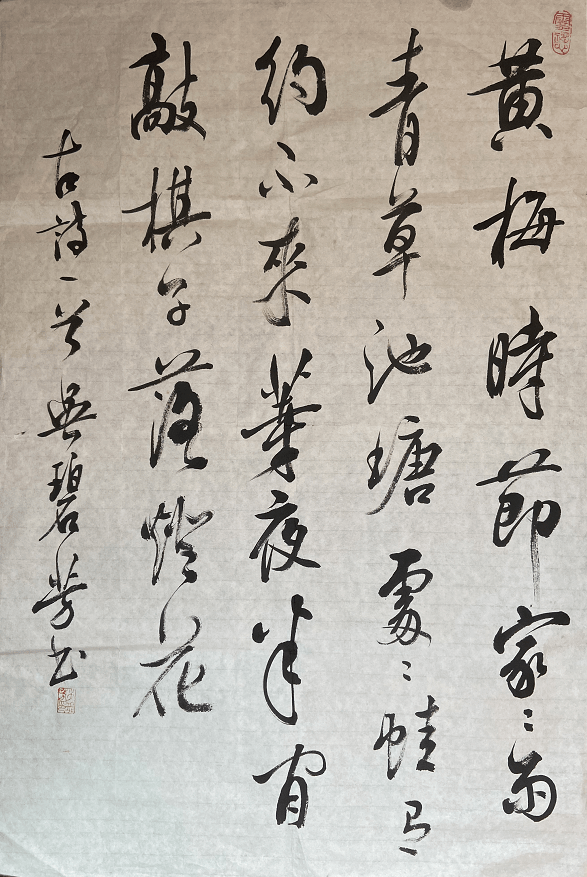 黄梅時節家々雨
青草池塘處々蛙有
約不來夜半閒
敲棋子落燈花
古詩一首 吳碧芳書